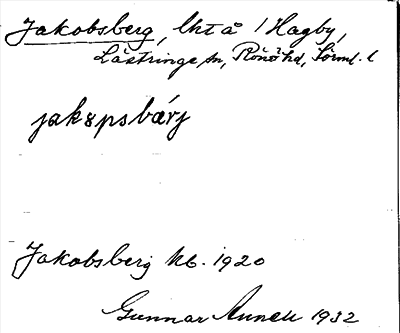 Jakobsberg, lht å 1 Hagby,
Lästringe sn, Rönö hd, Sörml. l
jakɞpsbærj
Jakobsberg kb. 1920
Gunnar Annell 1932